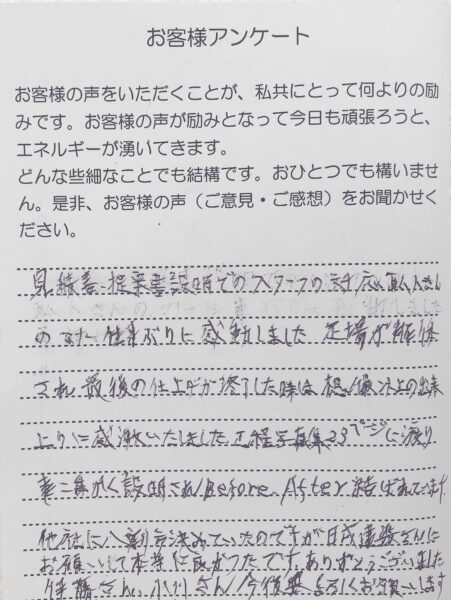 お客様アンケート
お客様の声をいただくことが、私共にとって何よりの励
みです。お客様の声が励みとなって今日も頑張ろうと、
エネルギーが湧いてきます。
どんな些細なことでも結構です。おひとつでも構いませ
ん。是非、お客様の声（ご意見・ご感想）をお聞かせく
ださい。
見積書、提案書説明でのスタッフの対応、職人さん
の 仕事ぶりに感動しました 足場が解体
され 最後の仕上げが終了した時は想像以上の出来
上りに感激いたしました 工程写真集23ページに渡り
説明され Before After 結ばれています
他社に八割方決めていたのですが日成建装さんに
お願いして本当に良かったです。ありがとうございました
伊藤さん、小川さん 今後共よろしくお願いします